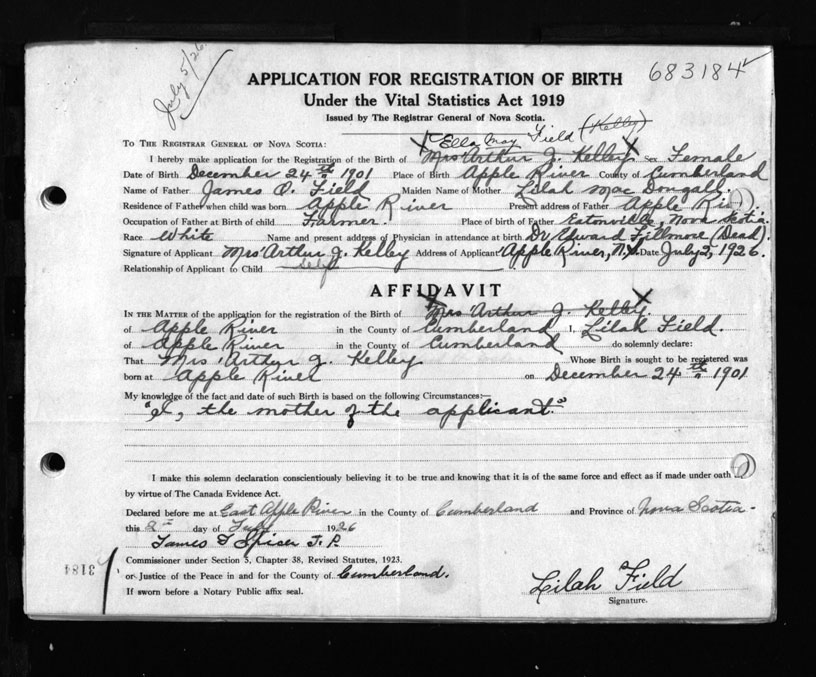 July 5/26
683184
APPLICATION FOR REGISTRATION OF BIRTH
Under the Vital Statistics Act 1919
Issued by The Registrar General of Nova Scotia.
Ella May Field (Kelley)
TO THE REGISTRAR GENERAL OF NOVA SCOTIA:
I hereby make application for the Registration of the Birth of Mrs Arthur J. Kelley Sex Female
Date of Birth December 24th 1901 Place of Birth Apple River County of Cumberland
Name of Father James O. Field Maiden Name of Mother Lilah MacDougall.
Residence of Father when child was born Apple River Present address of Father Apple
Occupation of Father at Birth of child Farmer. Place of birth of Father Eatonville, Nova Scotia.
Race White Name and present address of Physician in attendance at birth Dr Edward Fillmore (Dead).
Signature of Applicant Mrs Arthur J. Kelley Address of Applicant Apple River, N.S. Date July 2, 1926.
Relationship of Applicant to Child self
AFFIDAVIT
IN THE MATTER of the application for the registration of the Birth of Mrs Arthur J. Kelley.
of Apple River in the County of Cumberland I, Lilah Field.
of Apple River in the County of Cumberland do solemnly declare:
That Mrs Arthur J. Kelley Whose Birth is sought to be registered was
born at Apple River on December 24th 1901
My knowledge of the fact and date of such Birth is based on the following Circumstances:—
"I, the mother of the applicant."
I make this solemn declaration conscientiously believing it to be true and knowing that it is of the same force and effect as if made under oath
by virtue of The Canada Evidence Act.
Declared before me at East Apple River in the County of Cumberland and Province of Nova Scotia-
this 2nd day of July 1926
James T Spicer J.P.
Commissioner under Section 5, Chapter 38, Revised Statutes, 1923.
or Justice of the Peace in and for the County of Cumberland.
If sworn before a Notary Public affix seal.
Lilah Field
Signature.
3184